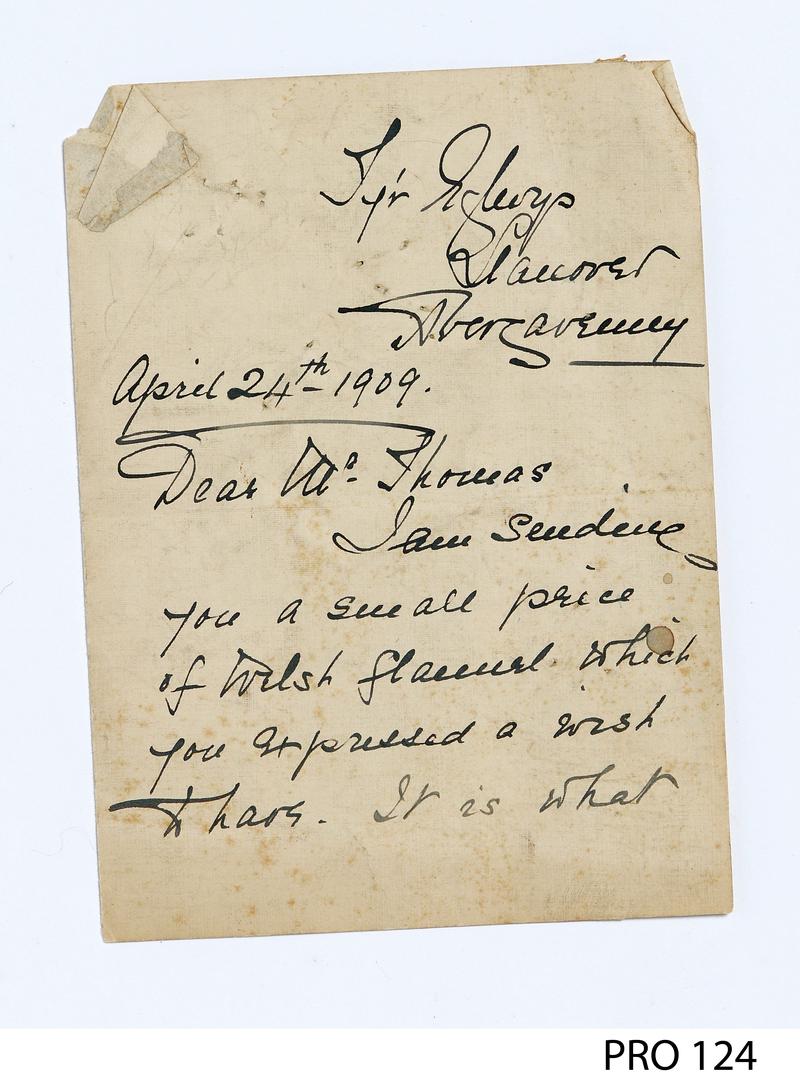 Tyr Eglwys
Llanover
Abergavenny
April 24th 1909.
Dear Mrs Thomas
I am sending
you a small price
of Welsh flannel which
you expressed a wish
to have. It is what
PRO 124